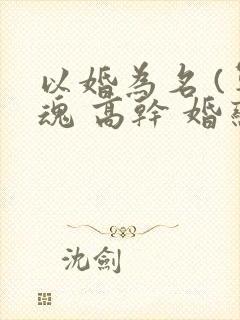 以婚為名(
魂 高幹 婚
沈劍